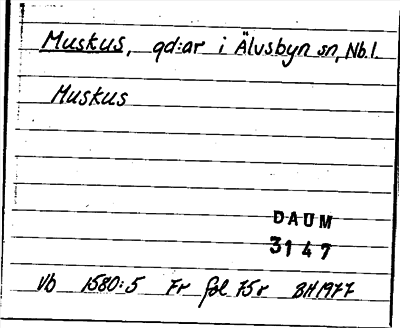 Muskus, gd:ar i Älvsbyn sn, Nb.l.
Muskus
DAUM
3147
Vb 1580:5 Fr fol 75r BH1977